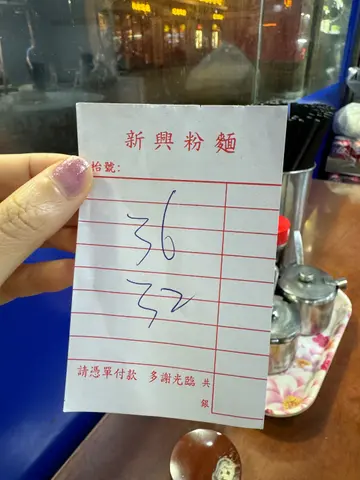 新興粉麵
枱號:
36
32
請憑單付款 多謝光臨 共
銀